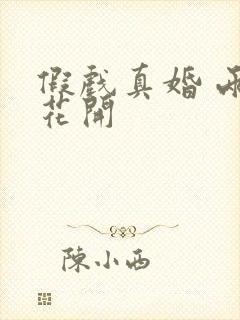 假戲真婚 兩
花開
陳小西